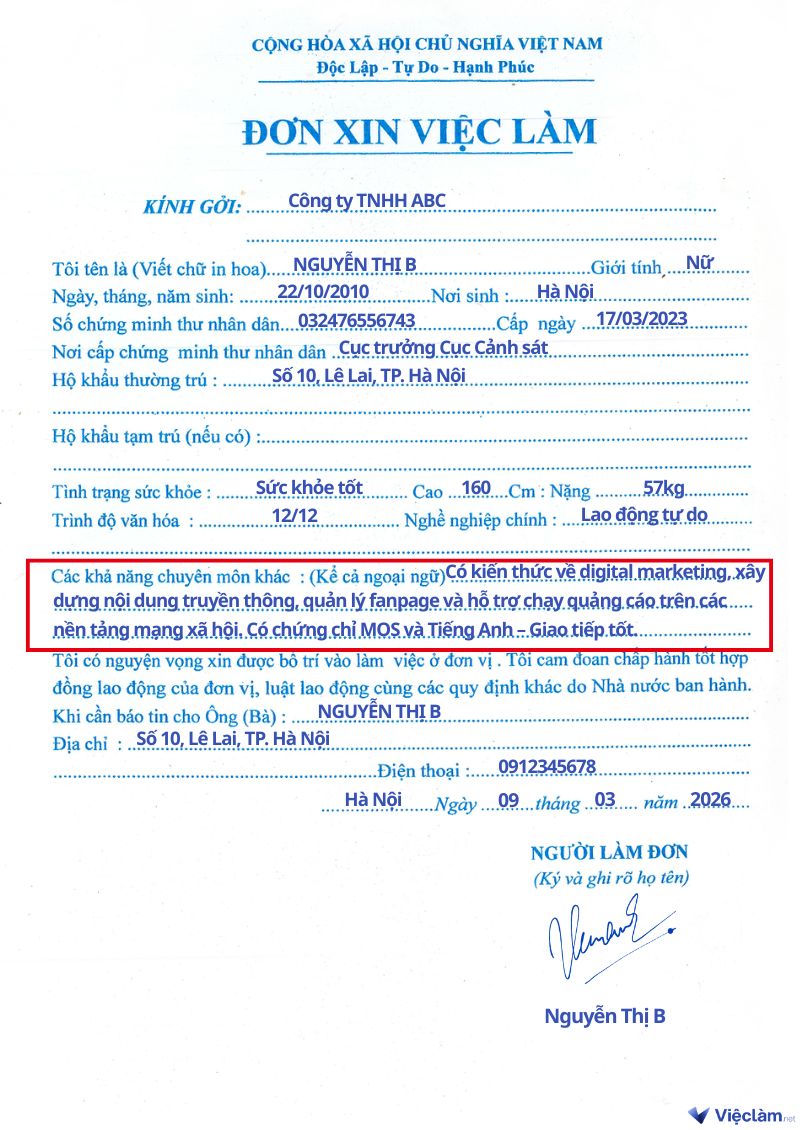 CỘNG HÒA XÃ HỘI CHỦ NGHĨA VIỆT NAM
Độc Lập - Tự Do - Hạnh Phúc
ĐƠN XIN VIỆC LÀM
KÍNH GỞI: Công ty TNHH ABC
Tôi tên là (Viết chữ in hoa) NGUYỄN THỊ B Giới tính Nữ
Ngày, tháng, năm sinh: 22/10/2010 Nơi sinh : Hà Nội
Số chứng minh thư nhân dân 032476556743 Cấp ngày 17/03/2023
Nơi cấp chứng minh thư nhân dân Cục trưởng Cục Cảnh sát
Hộ khẩu thường trú : Số 10, Lê Lai, TP. Hà Nội
Hộ khẩu tạm trú (nếu có) :
Tình trạng sức khỏe : Sức khỏe tốt Cao 160 Cm : Nặng 57kg
Trình độ văn hóa : 12/12 Nghề nghiệp chính : Lao động tự do
Các khả năng chuyên môn khác : (Kể cả ngoại ngữ) Có kiến thức về digital marketing, xây
dựng nội dung truyền thông, quản lý fanpage và hỗ trợ chạy quảng cáo trên các
nền tảng mạng xã hội. Có chứng chỉ MOS và Tiếng Anh – Giao tiếp tốt.
Tôi có nguyện vọng xin được bố trí vào làm việc ở đơn vị . Tôi cam đoan chấp hành tốt hợp
đồng lao động của đơn vị, luật lao động cùng các quy định khác do Nhà nước ban hành.
Khi cần báo tin cho Ông (Bà) : NGUYỄN THỊ B
Địa chỉ : Số 10, Lê Lai, TP. Hà Nội
Điện thoại : 0912345678
Hà Nội Ngày 09 tháng 03 năm 2026
NGƯỜI LÀM ĐƠN
(Ký và ghi rõ họ tên)
Nguyễn Thị B
Việclàm.net